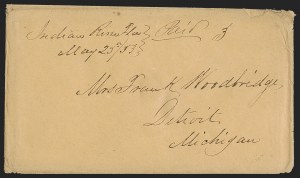 Indian River Fla Paid 3
May 25th /55
Mrs. Frank Woodbridge,
Detroit
Michigan